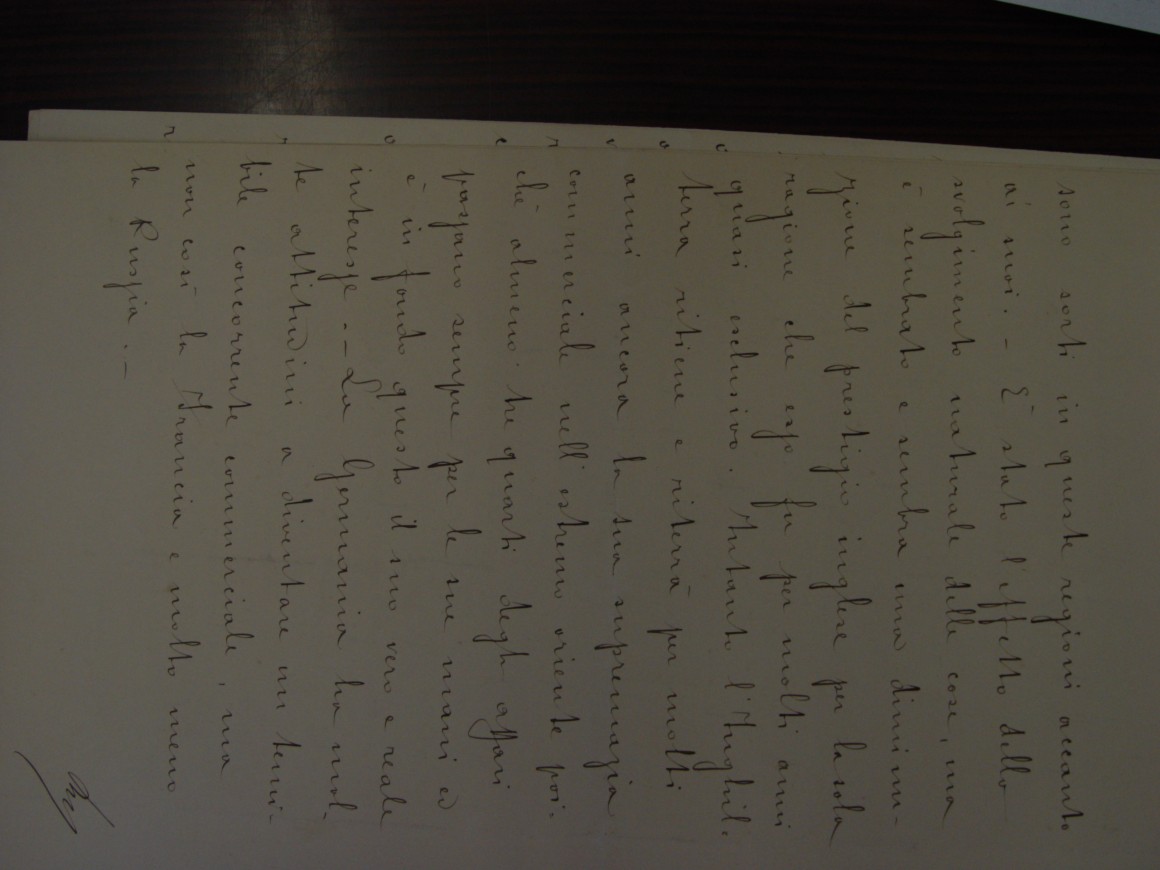 sono sorti in queste regioni accanto
ai suoi. - È stato l'effetto dello
svolgimento naturale delle cose, ma
è sembrato e sembra una diminu-
zione del prestigio inglese per la sola
ragione che esso fu per molti anni
quasi esclusivo. Intanto l'Inghil-
terra ritiene e riterrà per molti
anni ancora la sua supremazia
commerciale nell'estremo oriente poi-
chè almeno tre quarti degli affari
passano sempre per le sue mani ed
è in fondo questo il suo vero e reale
interesse -- La Germania ha mol-
te attitudini a diventare un temi-
bile concorrente commerciale, ma
non così la Francia e molto meno
la Russia. -